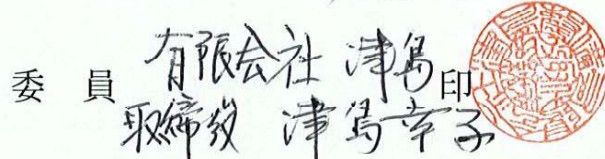 委員 有限会社 津島 印
取締役 津島幸子